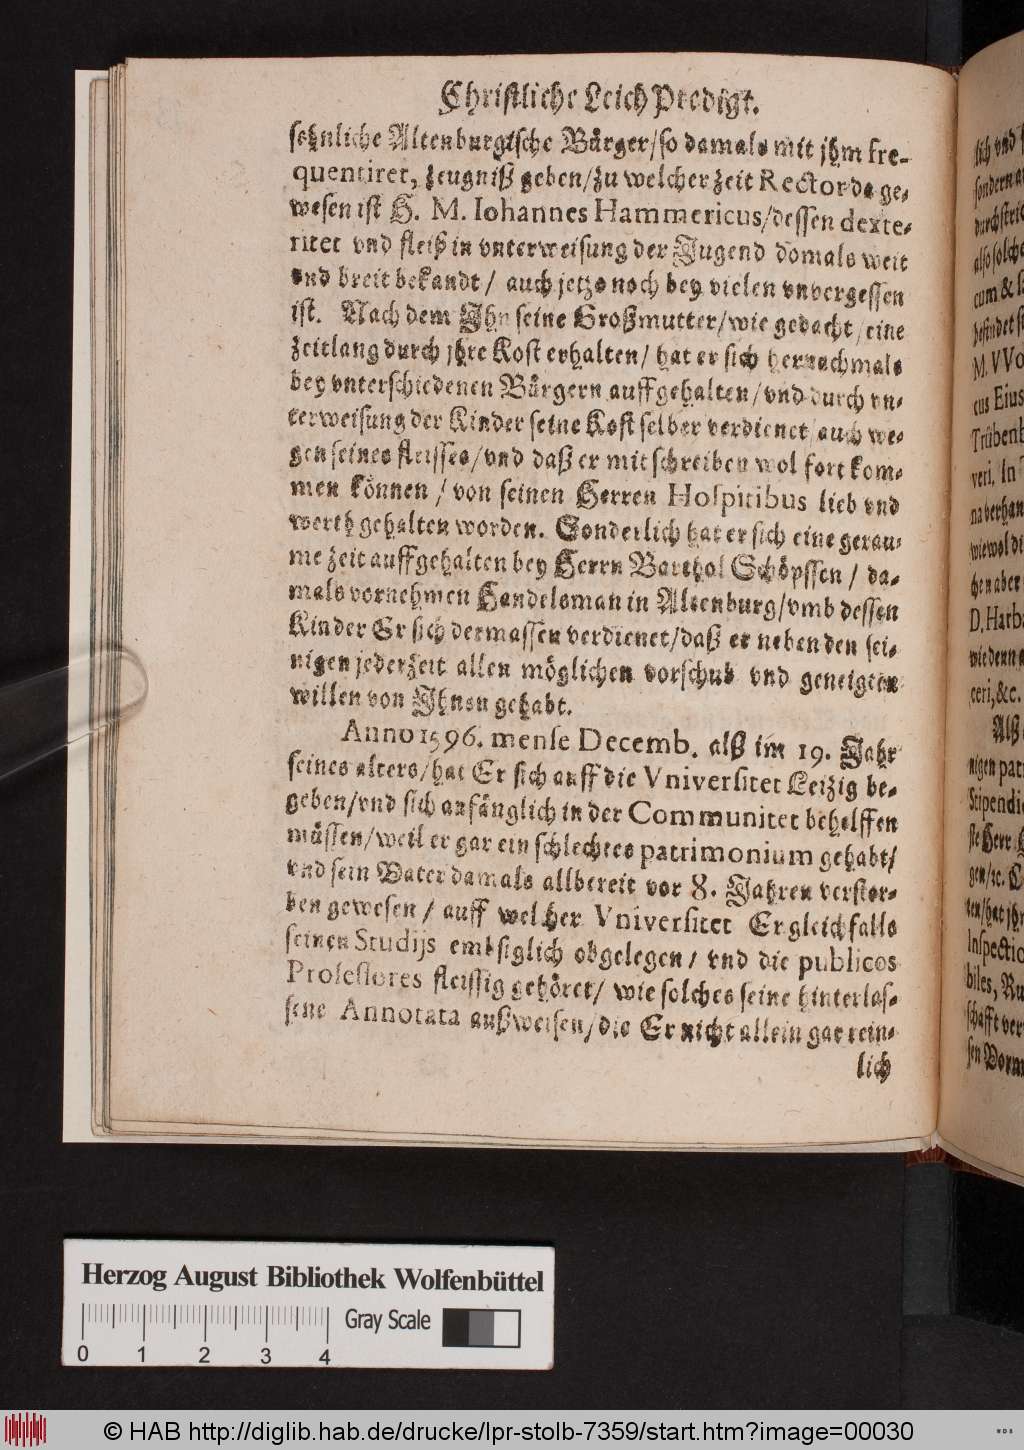 Christliche Leich Predigt.
sehnliche Altenburgische Bürger/so damals mit jhm fre-
quentiret, zeugniß geben/zu welcher zeit Rector da ge-
wesen ist H. M. Iohannes Hammericus/dessen dexte-
ritet vnd fleiß in vnterweisung der Jugend domals weit
vnd breit bekandt/ auch jetzo noch bey vielen vnvergessen
ist. Nach dem Ihn seine Großmutter/wie gedacht/eine
zeitlang durch jhre Kost erhalten/ hat er sich hernachmals
bey vnterschiedenen Bürgern auffgehalten/vnd durch vn-
terweisung der Kinder seine Kost selber verdienet/auch we-
gen seines fleisses/vnd daß er mit schreiben wol fort kom-
men können/ von seinen Herren Hospitibus lieb vnd
werth gehalten worden. Sonderlich hat er sich eine gerau-
me zeit auffgehalten bey Herrn Barthol Schöpssen/ da-
mals vornehmen Handelsman in Altenburg/vmb dessen
Kinder Er sich dermassen verdienet/daß er neben den sei-
nigen jederzeit allen möglichen vorschub vnd geneigten
willen von Ihnen gehabt.
Anno 1596. mense Decemb. alß im 19. Jahr
seines alters/hat Er sich auff die Vniversitet Leizig be-
geben/vnd sich anfänglich in der Communitet behelffen
müssen/weil er gar ein schlechtes patrimonium gehabt/
vnd sein Vater damals allbereit vor 8. Jahren verstor-
ben gewesen/ auff welcher Vniversitet Er gleichfalls
seinen Studijs embsiglich obgelegen/ vnd die publicos
Professores fleissig gehöret/ wie solches seine hinterlas-
sene Annotata außweisen/die Er nicht allein gar rein-
lich
lich vnd
sondern
durchstri
also solche
cum &
befindet
M. VVo
cus Eius
Trübenb
veri. In
na verhan
wiewol di
chen aber
D. Harba
wie denn
ceri, &c.
Alß
nigen pat
Stipendi
ste Herr
gen/ic.
ten/hat jh
Inspectio
biles, Ru
schafft ver
sen Vorm
Herzog August Bibliothek Wolfenbüttel
0 1 2 3 4
Gray Scale
© HAB http://diglib.hab.de/drucke/lpr-stolb-7359/start.htm?image=00030